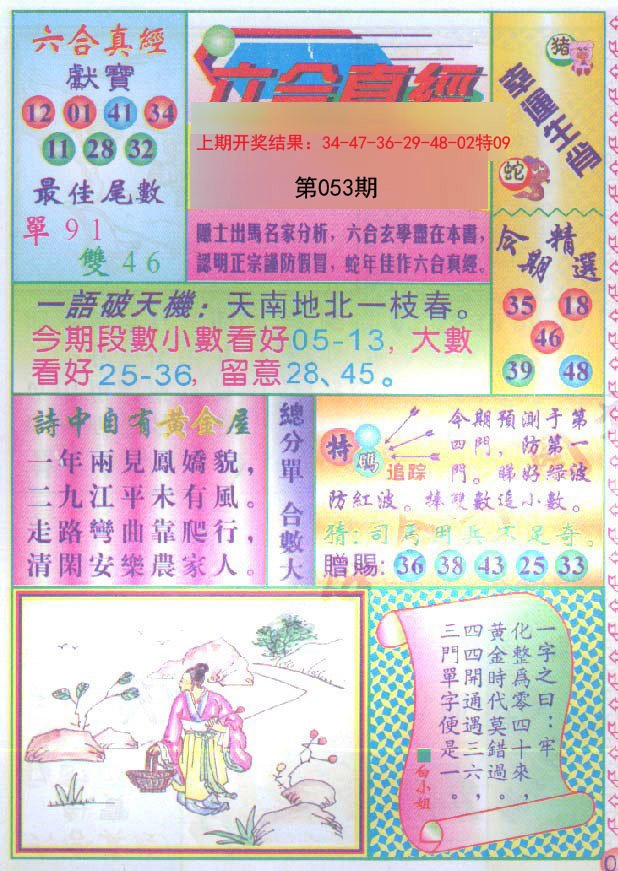 六合真經
獻寶
12 01 41 34
11 28 32
最佳尾數
單 91
雙 46
六合真經
上期开奖结果：34-47-36-29-48-02特09
第053期
隱士出馬名家分析，六合玄學盡在本書，
認明正宗謹防假冒，蛇年佳作六合真經。
猪
蛇
今期
精選
35 18
46
39 48
一語破天機：天南地北一枝春。
今期段數小數看好05-13，大數
看好25-36，留意28、45。
詩中自有黃金屋
一年兩見鳳嬌貌，
二九江平未有風。
走路彎曲靠爬行，
清閑安樂農家人。
總分單 合數大
特碼
追踪
今期預測于第
四門，防第一
門。睇好绿波
防紅波。捧雙數追小數。
猜：司馬用兵不足奇。
贈賜：36 38 43 25 33
一字之曰：牢
化整爲零四十來，
黃金時代莫錯過。
四四開通遇三六，
三門單字便是一。
白小姐